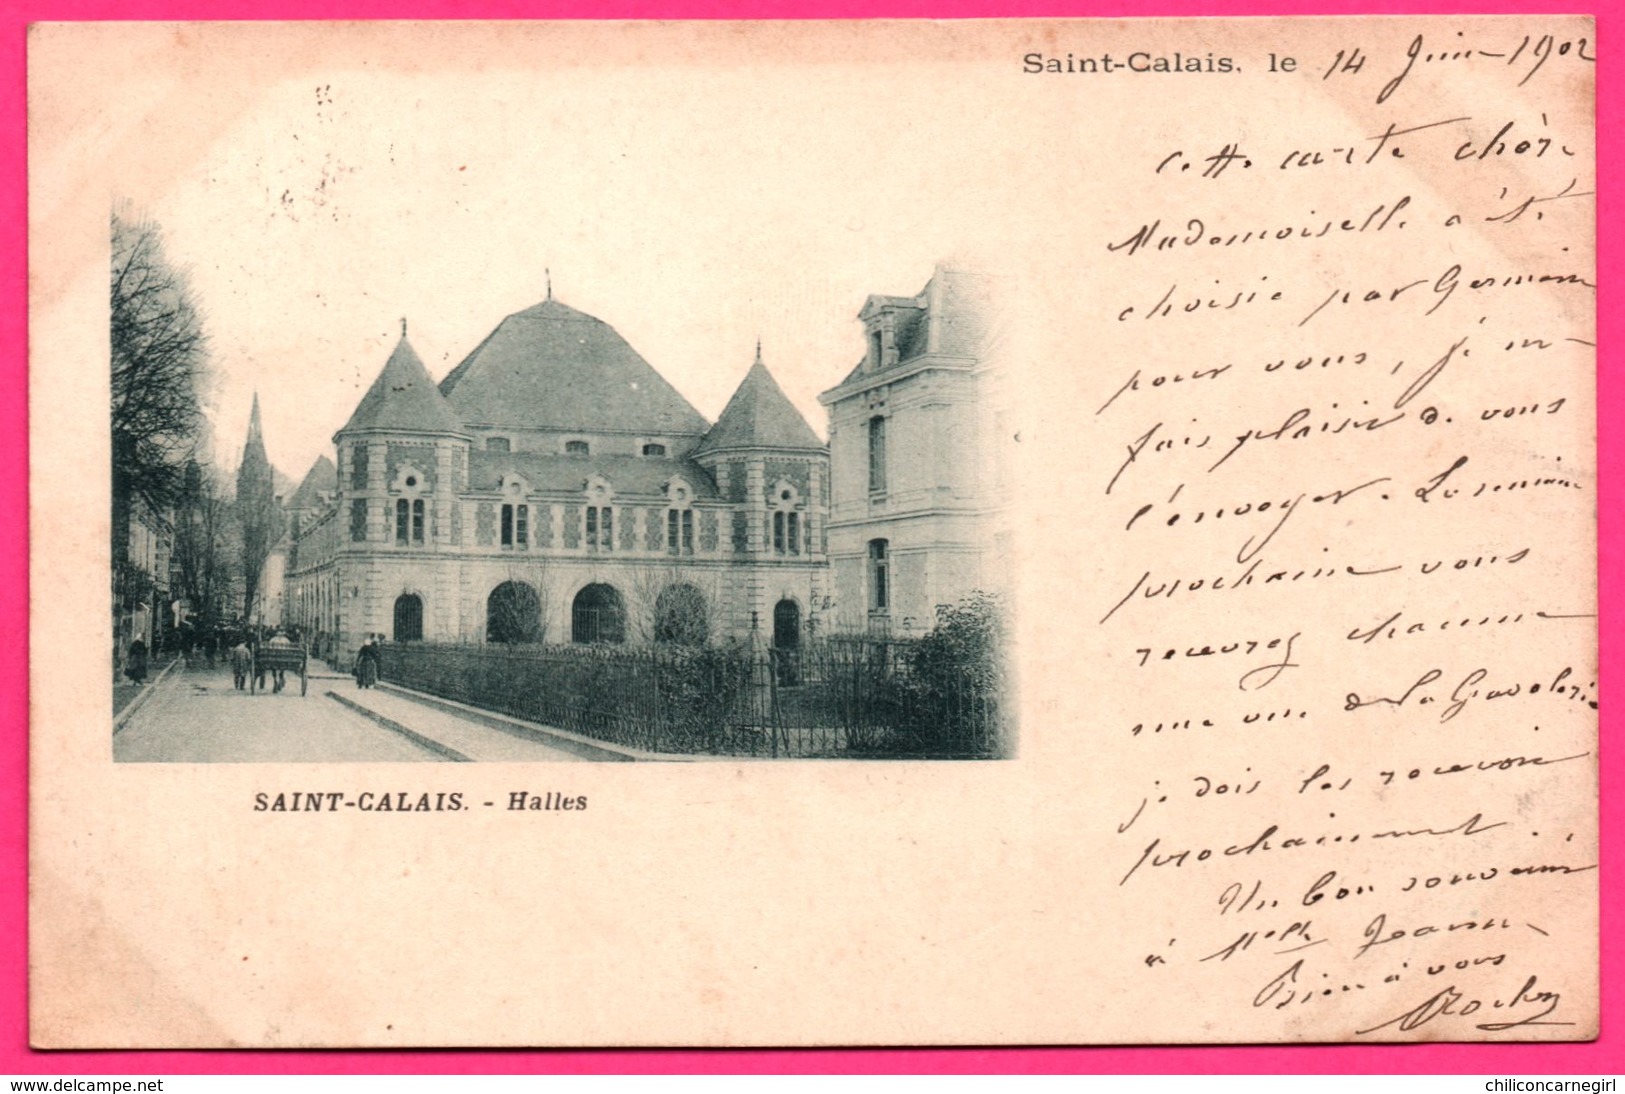 Saint-Calais, le 14 Juin 1902
Cette carte chère
Mademoiselle a été
choisie par Germaine
pour vous, je me
fais plaisir de vous
l'envoyer. La semaine
prochaine vous
recevrez chacune
une vue de la
je dois les recevoir
prochainement.
Un bon souvenir
à Melle Jeanne
Bien à vous
SAINT-CALAIS. - Halles
www.delcampe.net
chiliconcarnegirl